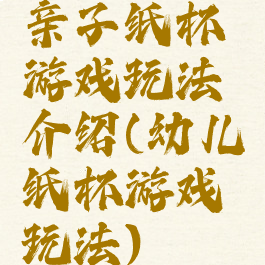 亲子纸杯
游戏玩法
介绍(幼儿
纸杯游戏
玩法)